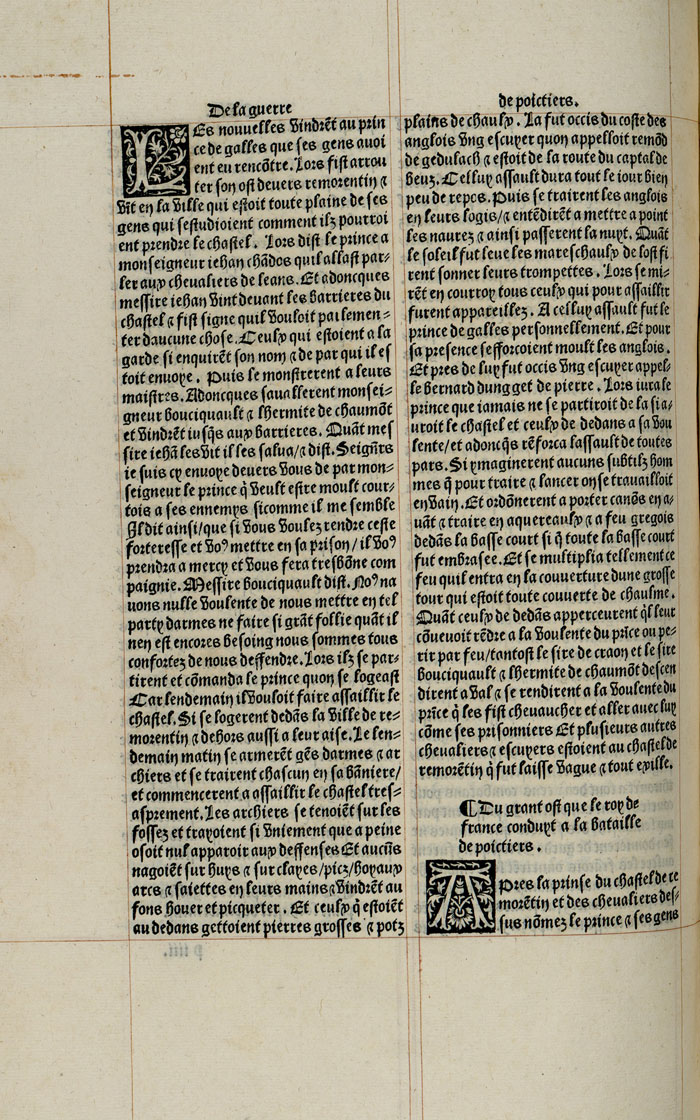 De la guerre
de poictiers.
LEs nouuelles vindrẽt au prin
ce de galles que ses gens auoi
ent eu rencõtre. Lors fist arrou
ter son ost deuers remorentin ⁊
vit en la ville qui estoit toute plaine de ses
gens qui sestudioient comment ilz pourroi
ent prendre le chastel. Lors dist le prince a
monseigneur iehan chãdos quil allast par⸗
ler aux cheualiers de leans. Et adoncques
messire iehan vint deuant les barrieres du
chastel ⁊ fist signe quil vouloit pailemen⸗
ter daucune chose. Ceulx qui estoient a la
garde si enquirẽt son nom ⁊ de par qui il es
toit enuoye. Puis le monstrerent a leurs
maistres. Adoncques saualerent monsei⸗
gneur bouciquault ⁊ lhermite de chaumõt
et vindrẽt iusq̃s aux barrieres. Quãt mes
sire iehã les vit il les salua/⁊ dist. Seignr̃s
ie suis cy enuoye deuers vous de par mon⸗
seigneur le prince q̃ veult estre moult cour⸗
tois a ses ennemys sicomme il me semble
Il dit ainsi/que si vous voulez rendre ceste
forteresse et voꝰ mettre en sa prison/il voꝰ
prendra a mercy et vous fera tresbõne com
paignie. Messire bouciquault dist. Noꝰ na
uons nulle voulente de nous mettre en tel
party darmes ne faire si grãt follie quãt il
nen est encores besoing nous sommes tous
confortez de nous deffendre. Lors ilz se par⸗
tirent et cõmanda le prince quon se logeast
Car lendemain il vouloit faire assaillir le
chastel. Si se logerent dedãs la ville de re⸗
morentin ⁊ dehors aussi a leur aise. Le len⸗
demain matin se armerẽt gẽs darmes ⁊ ar
chiers et se trairent chascun en sa bãniere/
et commencerent a assaillir le chastel tres⸗
asprement. Les archiers se tenoiẽt sur les
fossez et trayoient si vniement que a peine
osoit nul apparoir aux deffenses Et aucũs
nagoiẽt sur huys ⁊ sur clayes/picz/hoyaux
arcs ⁊ saiettes en leurs mains ⁊ vindrẽt au
fons houer et picqueter. Et ceulx q̃ estoiẽt
au dedans gettoient pierres grosses ⁊ potz
plains de chaulx. La fut occis du coste des
anglois vng escuyer quon appelloit remõd
de gedulach ⁊ estoit de la route du captal de
beuz. Celluy assault dura tout le iour bien
peu de repos. Puis se trairent les anglois
en leurs logis/⁊ entẽdirẽt a mettre a point
les naurez ⁊ ainsi passerent la nuyt. Quãt
le soleil fut leue les mareschaulx de lost fi
rent sonner leurs trompettes. Lors se mi⸗
rẽt en courroy tous ceulx qui pour assaillir
furent appareillez. A celluy assault fut le
prince de galles personnellement. Et pour
sa presence sefforcoient moult les anglois.
Et pres de luy fut occis vng escuyer appel⸗
le bernard dungget de pierre. Lors iura le
prince que iamais ne se partiroit de la si a⸗
uroit le chastel et ceulx de dedans a sa vou
lente/et adoncq̃s rẽforca lassault de toutes
pars. Si ymaginerent aucuns subtilz hom
mes q̃ pour traire ⁊ lancer on se trauailloit
en vain. Et ordõnerent a porter canõs en a⸗
uãt ⁊ traire en aquereaulx ⁊ a feu gregois
dedãs la basse court si q̃ toute la basse court
fut embrasee. Et se multiplia tellement ce
feu quil entra en la couuerture dune grosse
tour qui estoit toute couuerte de chaulme.
Quãt ceulx de dedãs apperceurent q̃l leur
cõuenoit rẽdre a la voulente du prĩce ou pe⸗
rir par feu/tantost le sire de craon et le sire
bouciquault ⁊ lhermite de chaumõt descen
dirent a val ⁊ se rendirent a la voulente du
prĩce q̃ les fist cheuaucher et aller auec luy
cõme ses prisonniers Et plusieurs autres
cheualiers ⁊ escuyers estoient au chastel de
remorẽtin q̃ fut laisse vague ⁊ tout exille.
¶ Du grant ost que le roy de
france conduyt a la bataille
de poictiers.
APres la prinse du chastel de re
morẽtin et des cheualiers des⸗
sus nõmez le prince ⁊ ses gens